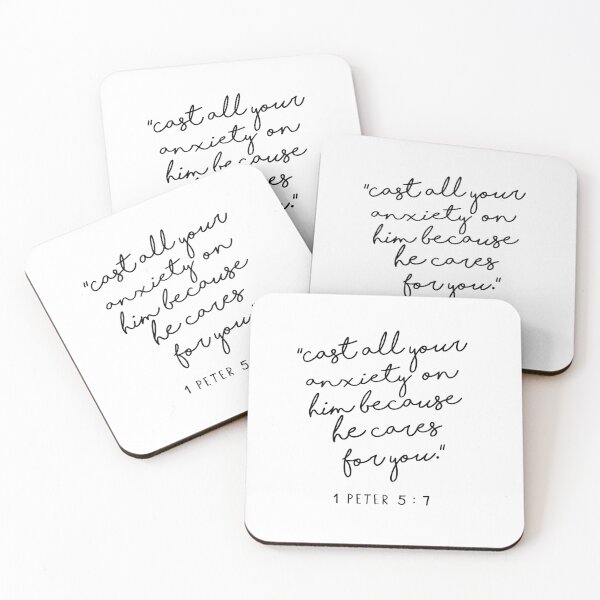 "cast all your
anxiety on
him because
"cast all your
anxiety on
him because
he cares
for you."
"cast all your
anxiety on
him because
he cares
for you."
1 PETER 5
"cast all your
anxiety on
him because
he cares
for you."
1 PETER 5:7